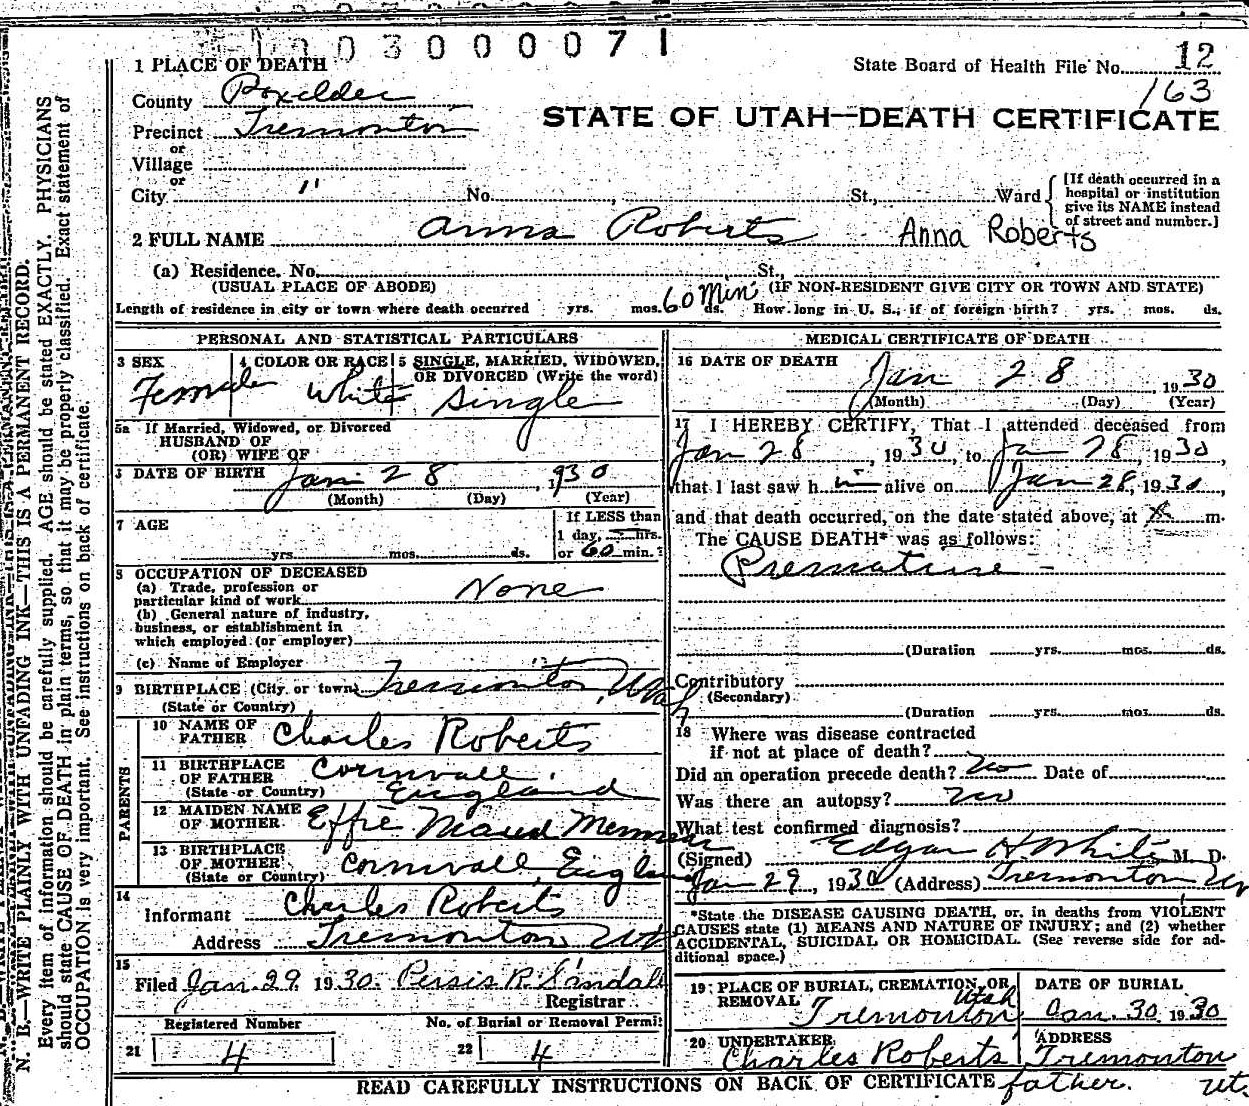 003000071
1 PLACE OF DEATH
State Board of Health File No. 12
163
County Boxelder
STATE OF UTAH—DEATH CERTIFICATE
Precinct Tremonton
or
Village
or
City " No. St., Ward
[If death occurred in a hospital or institution give its NAME instead of street and number.]
2 FULL NAME Anna Roberts Anna Roberts
(a) Residence. No. St.,
(USUAL PLACE OF ABODE) (IF NON-RESIDENT GIVE CITY OR TOWN AND STATE)
Length of residence in city or town where death occurred yrs. mos. 60 Min. ds. How long in U. S., if of foreign birth? yrs. mos. ds.
PERSONAL AND STATISTICAL PARTICULARS
3 SEX Female
4 COLOR OR RACE White
5 SINGLE, MARRIED, WIDOWED, OR DIVORCED (Write the word) Single
5a If Married, Widowed, or Divorced
HUSBAND OF
(OR) WIFE OF
DATE OF BIRTH Jan 28, 1930
(Month) (Day) (Year)
7 AGE
yrs. mos. ds.
If LESS than
1 day, hrs.
or 60 min.?
8 OCCUPATION OF DECEASED
(a) Trade, profession or
particular kind of work None
(b) General nature of industry,
business, or establishment in
which employed (or employer)
(c) Name of Employer
9 BIRTHPLACE (City or town) Tremonton, Utah
(State or Country)
PARENTS
10 NAME OF FATHER Charles Roberts
11 BIRTHPLACE OF FATHER Cornwall, England
(State or Country)
12 MAIDEN NAME OF MOTHER Effie Maud
13 BIRTHPLACE OF MOTHER Cornwall, England
(State or Country)
14
Informant Charles Roberts
Address Tremonton Ut
15
Filed Jan. 29 1930. Persis R. Sandall
Registrar
Registered Number
21 4
No. of Burial or Removal Permit
22 4
MEDICAL CERTIFICATE OF DEATH
16 DATE OF DEATH
Jan 28 1930
(Month) (Day) (Year)
17 I HEREBY CERTIFY, That I attended deceased from
Jan 28, 1930, to Jan 28, 1930,
that I last saw h alive on Jan 28, 1930,
and that death occurred, on the date stated above, at m.
The CAUSE DEATH* was as follows:
Premature -
(Duration yrs. mos. ds.
Contributory
(Secondary)
(Duration yrs. mos. ds.
18 Where was disease contracted
if not at place of death?
Did an operation precede death? no Date of
Was there an autopsy? no
What test confirmed diagnosis?
(Signed) Edgar H White M. D.
Jan 29, 1930 (Address) Tremonton Ut
*State the DISEASE CAUSING DEATH, or, in deaths from VIOLENT
CAUSES state (1) MEANS AND NATURE OF INJURY; and (2) whether
ACCIDENTAL, SUICIDAL OR HOMICIDAL. (See reverse side for ad-
ditional space.)
19 PLACE OF BURIAL, CREMATION, OR REMOVAL Tremonton Utah
DATE OF BURIAL
Jan. 30, 1930
20 UNDERTAKER
Charles Roberts
father.
ADDRESS
Tremonton
Ut.
READ CAREFULLY INSTRUCTIONS ON BACK OF CERTIFICATE
N. B.—WRITE PLAINLY WITH UNFADING INK—THIS IS A PERMANENT RECORD.
Every item of information should be carefully supplied. AGE should be stated EXACTLY. PHYSICIANS
should state CAUSE OF DEATH in plain terms, so that it may be properly classified. Exact statement of
OCCUPATION is very important. See instructions on back of certificate.